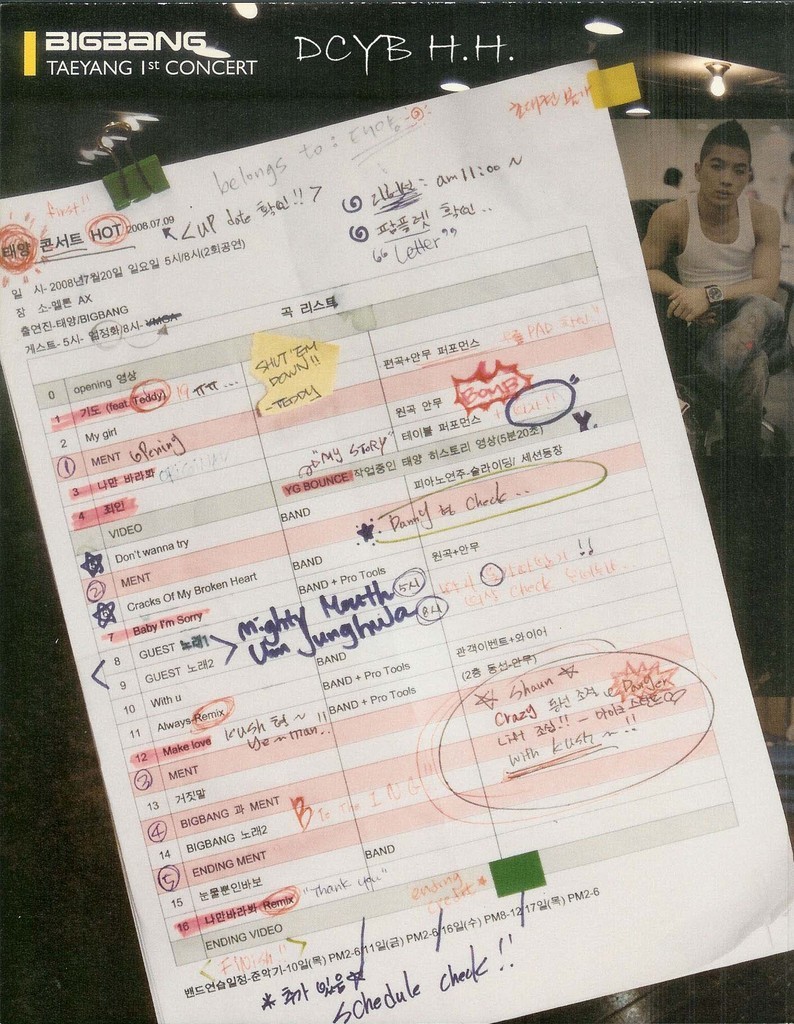 BIGBANG
TAEYANG 1st CONCERT
DCYB H.H.
belongs to: 태양
first!!
태양 콘서트 HOT 2008.07.09
<UP date 확인!!>
리허설: am 11:00 ~
팜플렛 확인..
"Letter"
일 시- 2008년7월20일 일요일 5시/8시(2회공연)
장 소-멜론 AX
출연진-태양/BIGBANG
게스트- 5시- 엄정화/8시-
곡 리스트
0 opening 영상
SHUT 'EM DOWN!! -TEDDY
편곡+안무 퍼포먼스
1 기도 (feat. Teddy) 19 ㅠㅠ...
2 My girl
원곡 안무
BOMB
① MENT opening
테이블 퍼포먼스
3 나만 바라봐 ORIGINAL
"MY STORY"
YG BOUNCE 작업중인 태양 히스토리 영상(5분20초)
4 죄인
피아노연주-슬라이딩/ 세션등장
VIDEO
BAND
Danny 형 check..
5 Don't wanna try
② MENT
BAND
원곡+안무
6 Cracks Of My Broken Heart
BAND + Pro Tools
7 Baby I'm Sorry
8 GUEST 노래1
Mighty Mouth 5시
9 GUEST 노래2
Uhm Junghwa 8시
10 With u
BAND
관객이벤트+와이어
11 Always-Remix
BAND + Pro Tools
(2층 동선-안무)
12 Make love
Kush 형~ Ye~ man..!!
BAND + Pro Tools
Shaun
Crazy 동선 조심 Danger
리프트 조심!! - 마이크 스탠드
with Kush~!!
③ MENT
13 거짓말
④ BIGBANG 과 MENT
B to the I N G!!
14 BIGBANG 노래2
⑤ ENDING MENT
15 눈물뿐인바보
BAND
16 나만바라봐 Remix "Thank you"
ending credit *
ENDING VIDEO
<FINISH!!>
밴드연습일정-준악기-10일(목) PM2-6/11일(금) PM2-6/16일(수) PM8-12/17일(목) PM2-6
* 추가 있음 *
Schedule check!!